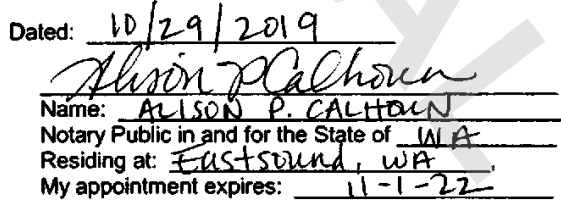 Dated: 10/29/2019
Alison P Calhoun
Name: ALISON P. CALHOUN
Notary Public in and for the State of WA
Residing at: Eastsound, WA.
My appointment expires: 11-1-22